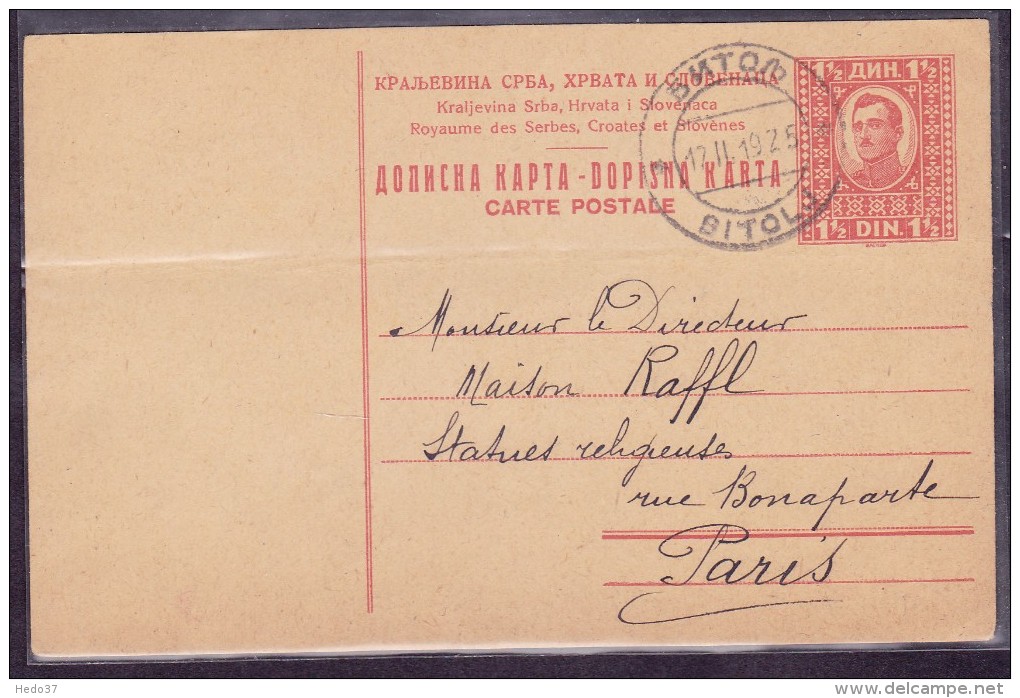 КРАЉЕВИНА СРБА, ХРВАТА И СЛОВЕНАЦА
Kraljevina Srba, Hrvata i Slovenaca
Royaume des Serbes, Croates et Slovènes
ДОПИСНА КАРТА - DOPISNA KARTA
CARTE POSTALE
БИТОЉ
12.II.1925
BITOLJ
1½ ДИН. 1½
1½ DIN. 1½
Monsieur le Directeur
Maison Raffl
Statues religieuses
rue Bonaparte
Paris
Hedo37
delcampe.net